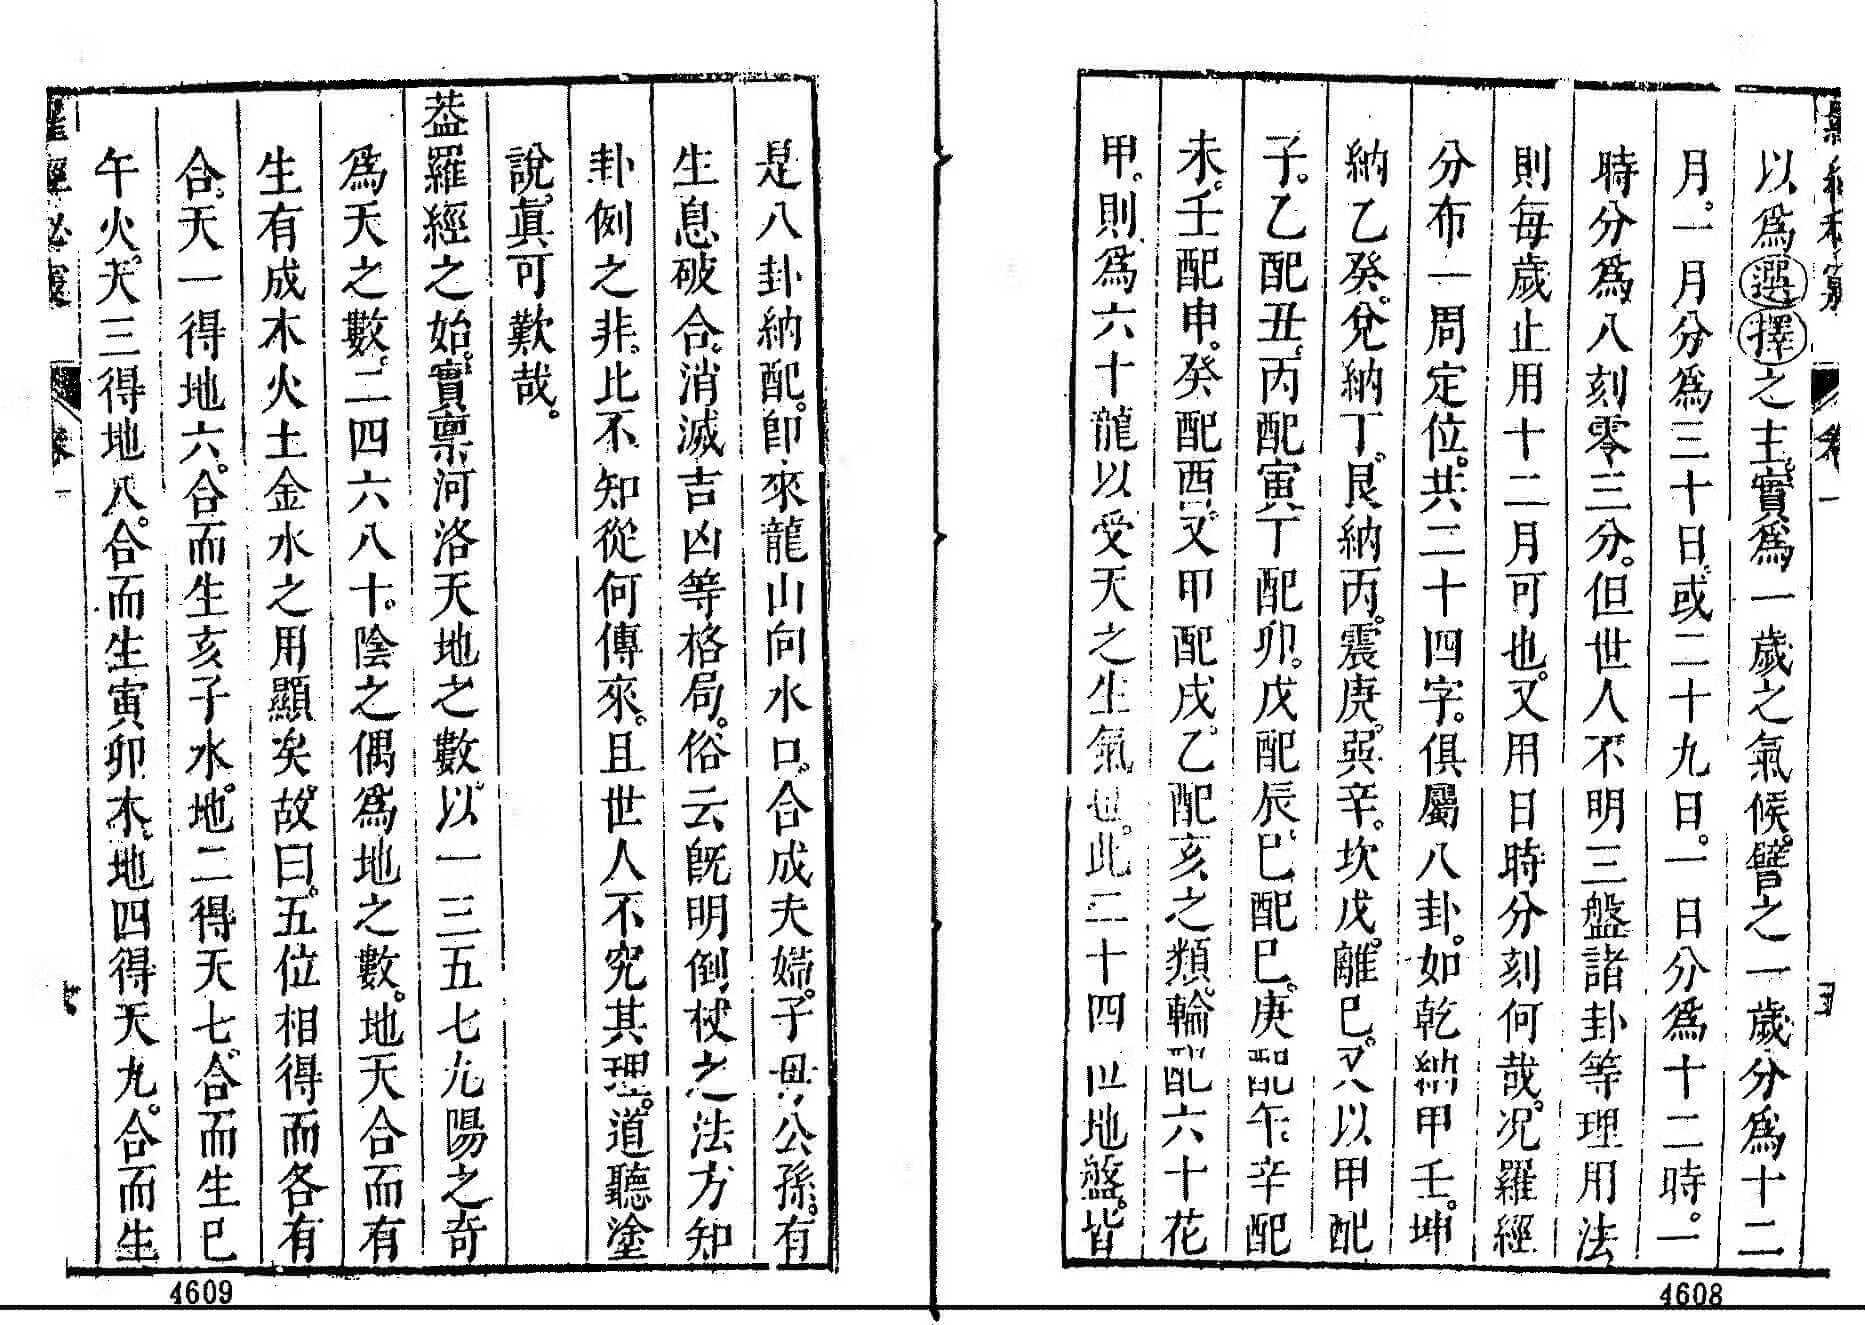 以爲選擇之主。實爲一歲之氣候。譬之一歲分爲十二
月。一月分爲三十日。或二十九日。一日分爲十二時。一
時分爲八刻零三分。但世人不明三盤諸卦等理用法
則每歲止用十二月可也。又用日時分刻何哉。况羅經
分布一周定位。共二十四字。俱屬八卦。如乾納甲壬。坤
納乙癸。兌納丁。艮納丙。震庚。巽辛。坎戊。離己。又以甲配
子。乙配丑。丙配寅丁配卯。戊配辰巳配巳。庚配午。辛配
未。壬配申。癸配酉。又甲配戌。乙配亥之類。輪配六十花
甲。則爲六十龍以受天之生氣也。此二十四位地盤。皆
4608
是八卦納配。卽來龍山向水口。合成夫婦。子母公孫。有
生息破合。消滅吉凶等格局。俗云旣明倒杖之法方知
卦例之非。比不知從何傳來。且世人不究其理。道聽塗
說。眞可歎哉。
葢羅經之始。實禀河洛天地之數。以一三五七九陽之奇
爲天之數。二四六八十。陰之偶爲地之數。地天合而有
生有成木火土金水之用顯矣。故曰。五位相得而各有
合。天一得地六。合而生亥子水。地二得天七。合而生巳
午火。天三得地八。合而生寅卯木。地四得天九。合而生
羅經必
卷一
4609